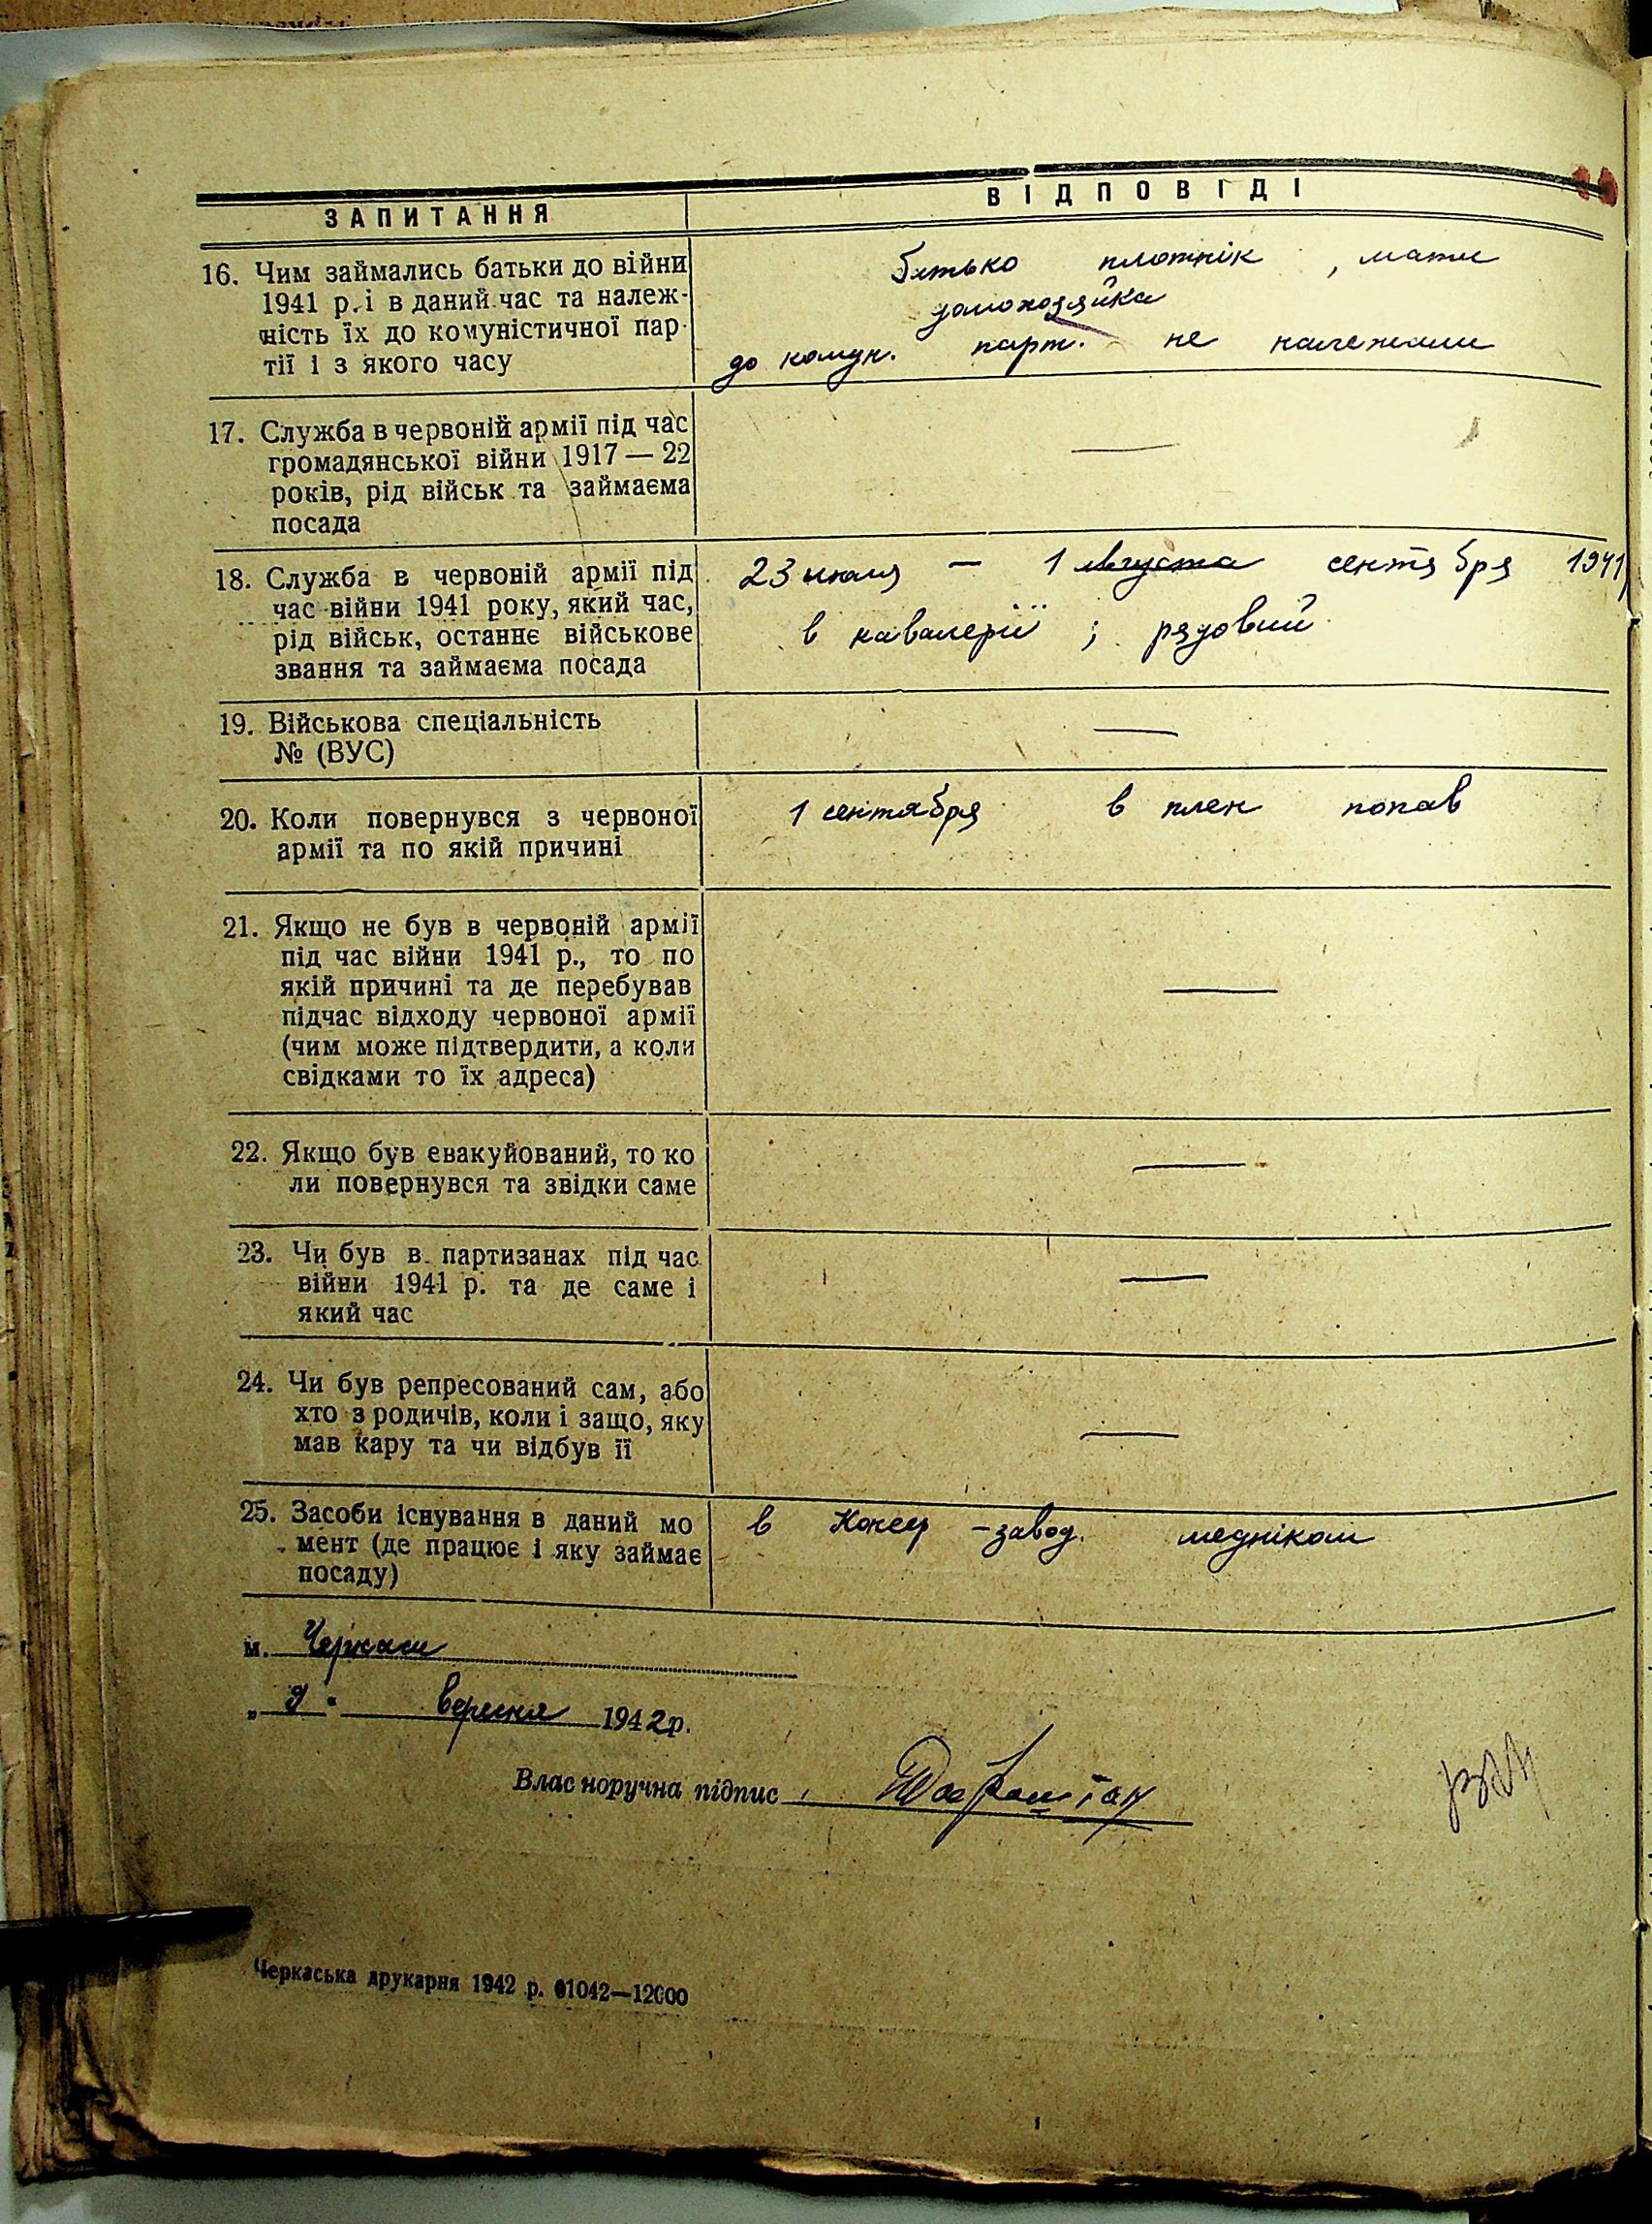 ЗАПИТАННЯ
ВІДПОВІДІ
16. Чим займались батьки до війни
1941 р. і в даний час та належ-
ність їх до комуністичної пар-
тії і з якого часу
батько плотнік, мати
домохозяйка
до комун. парт. не належали
17. Служба в червоній армії під час
громадянської війни 1917 — 22
років, рід військ та займаєма
посада
—
18. Служба в червоній армії під
час війни 1941 року, який час,
рід військ, останнє військове
звання та займаєма посада
23 июля — 1 августа сентября 1941
в кавалерії ; рядовий
19. Військова спеціальність
№ (ВУС)
—
20. Коли повернувся з червоної
армії та по якій причині
1 сентября в плен попав
21. Якщо не був в червоній армії
під час війни 1941 р., то по
якій причині та де перебував
підчас відходу червоної армії
(чим може підтвердити, а коли
свідками то їх адреса)
—
22. Якщо був евакуйований, то ко
ли повернувся та звідки саме
—
23. Чи був в партизанах під час
війни 1941 р. та де саме і
який час
—
24. Чи був репресований сам, або
хто з родичів, коли і защо, яку
мав кару та чи відбув її
—
25. Засоби існування в даний мо
мент (де працює і яку займає
посаду)
в Консер -завод. медніком
м. Черкаси
„ 9 " вересня 1942 р.
Власноручна підпис
Черкаська друкарня 1942 р. 01042—12000